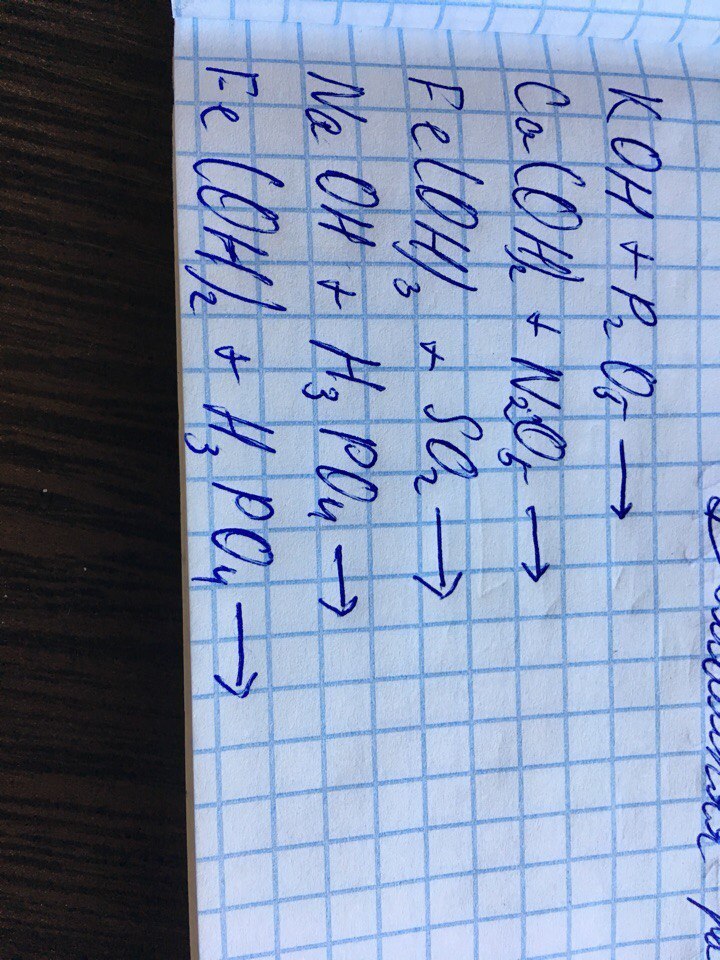 KOH + P₂O₅ →
Ca(OH)₂ + N₂O₅ →
Fe(OH)₃ + SO₂ →
NaOH + H₃PO₄ →
Fe(OH)₂ + H₃PO₄ →